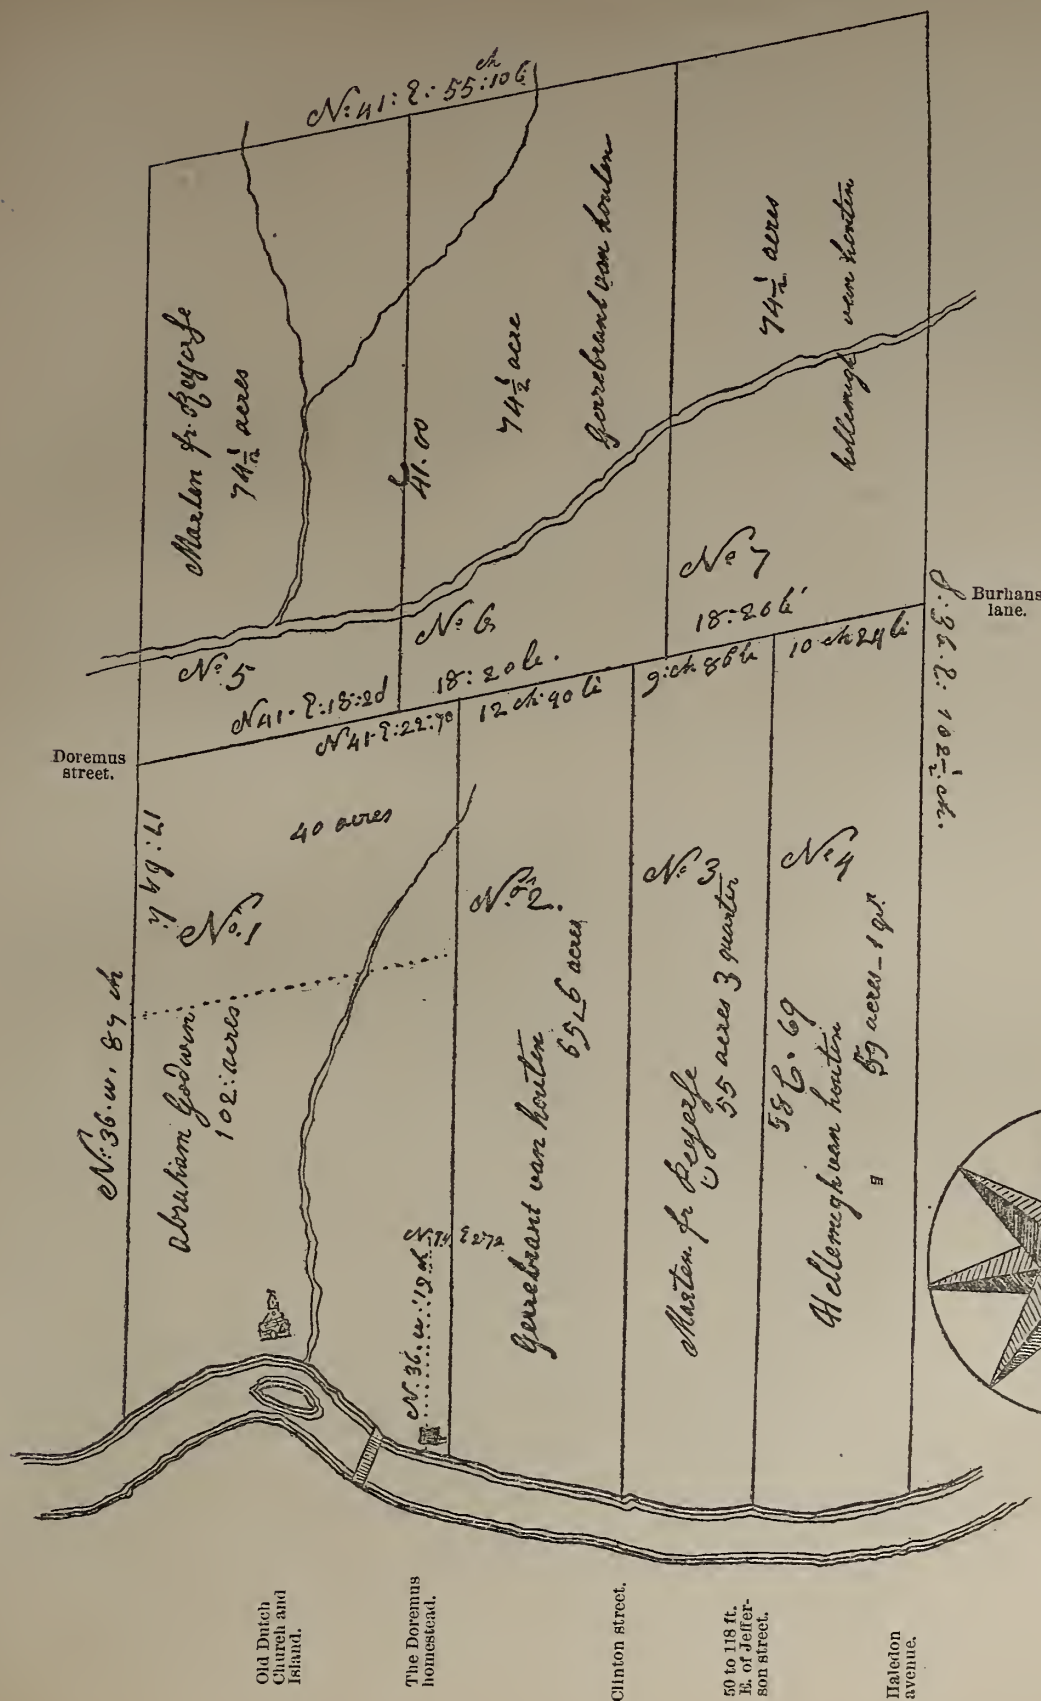 N: 41: E: 55: 10 li
ch
Marten
74½ acres
41.00
74½ acre
Gerrebrant van houten
74½ acres
hellemigh van houten
No 5
No 6
No 7
18: 20 li
N 41- E: 18: 20
18: 20 li.
N 41- E: 22: 70
12 ch: 90 li
9: ch 86 li
10 ch 24 li
Doremus
street.
Burhans
lane.
40 acres
No. 1
No. 2.
No 3
No 4
N: 36. w. 87 ch
Abraham Godwin
102: acres
Gerrebrant van houten
acres
Marten
55 acres 3 quarter
58 69
Hellemigh van houten
59 acres - 1 qr.
N. 36. w: 19 ch
N. 74 E 272
Old Dutch
Church and
Island.
The Doremus
homestead.
Clinton street.
50 to 118 ft.
E. of Jeffer-
son street.
Haledon
avenue.